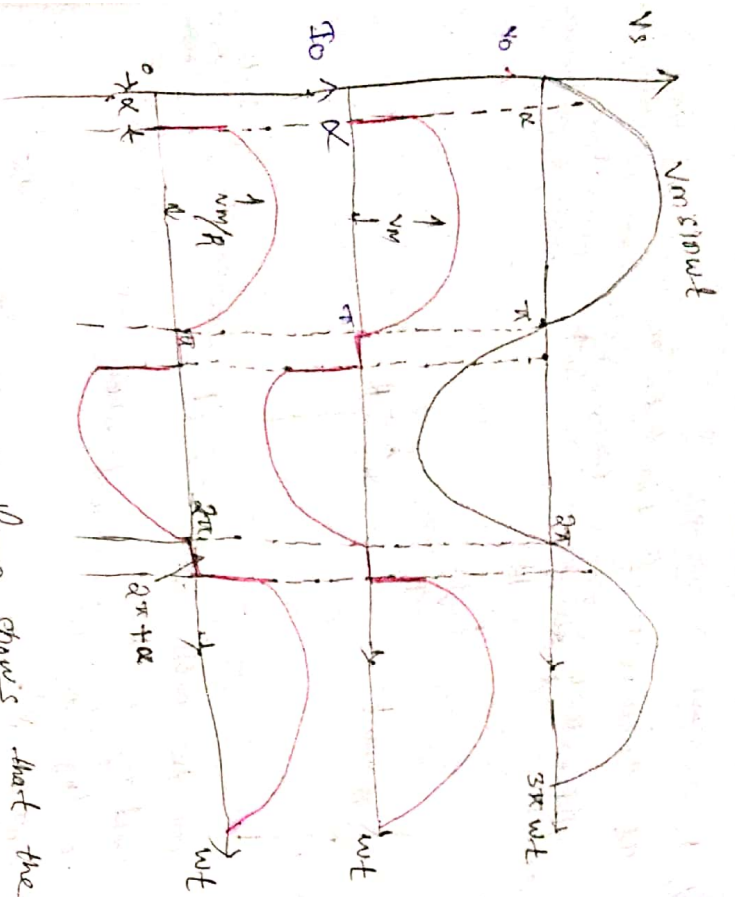 Vs
Vm sinwt
α
π
2π
3π wt
Vo
α
Vm
π
wt
Io
0
α
Vm/R
π
2π
2π+α
wt
shows that the